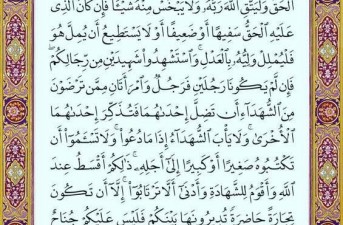 ٱلْحَقُّ وَلْيَتَّقِ ٱللَّهَ رَبَّهُۥ وَلَا يَبْخَسْ مِنْهُ شَيْـًٔا فَإِن كَانَ ٱلَّذِى
عَلَيْهِ ٱلْحَقُّ سَفِيهًا أَوْ ضَعِيفًا أَوْ لَا يَسْتَطِيعُ أَن يُمِلَّ هُوَ
فَلْيُمْلِلْ وَلِيُّهُۥ بِٱلْعَدْلِ ۚ وَٱسْتَشْهِدُوا۟ شَهِيدَيْنِ مِن رِّجَالِكُمْ ۖ
فَإِن لَّمْ يَكُونَا رَجُلَيْنِ فَرَجُلٌ وَٱمْرَأَتَانِ مِمَّن تَرْضَوْنَ
مِنَ ٱلشُّهَدَآءِ أَن تَضِلَّ إِحْدَىٰهُمَا فَتُذَكِّرَ إِحْدَىٰهُمَا
ٱلْأُخْرَىٰ ۚ وَلَا يَأْبَ ٱلشُّهَدَآءُ إِذَا مَا دُعُوا۟ ۚ وَلَا تَسْـَٔمُوٓا۟ أَن
تَكْتُبُوهُ صَغِيرًا أَوْ كَبِيرًا إِلَىٰٓ أَجَلِهِۦ ۚ ذَٰلِكُمْ أَقْسَطُ عِندَ
ٱللَّهِ وَأَقْوَمُ لِلشَّهَٰدَةِ وَأَدْنَىٰٓ أَلَّا تَرْتَابُوٓا۟ ۖ إِلَّآ أَن تَكُونَ
تِجَٰرَةً حَاضِرَةً تُدِيرُونَهَا بَيْنَكُمْ فَلَيْسَ عَلَيْكُمْ جُنَاحٌ